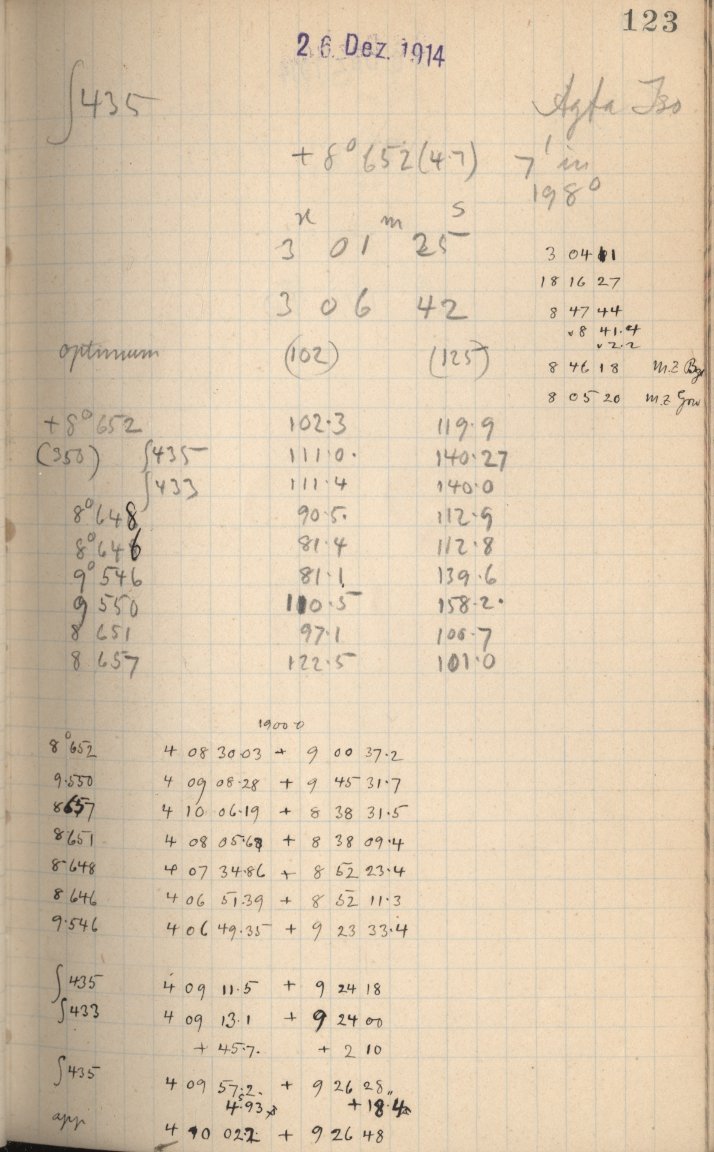 123
26. Dez. 1914
∫435 Agfa Iso
+ 8° 652 (4.7) 7' in
198°
h m s
3 01 25
3 06 42
3 04 11
18 16 27
8 47 44
8 41.4
2.2
8 46 18 M.Z
8 05 20 M.Z
optimum (102) (125)
+ 8° 652 102.3 119.9
(350) ∫435 111.0. 140.27
∫433 111.4 140.0
8° 648 90.5. 112.9
8° 646 81.4 112.8
9° 546 81.1 139.6
9 550 110.5 158.2.
8 651 97.1 106.7
8 657 122.5 101.0
1900.0
8° 652 4 08 30.03 + 9 00 37.2
9.550 4 09 08.28 + 9 45 31.7
8657 4 10 06.19 + 8 38 31.5
8651 4 08 05.68 + 8 38 09.4
8.648 4 07 34.86 + 8 52 23.4
8 646 4 06 51.39 + 8 52 11.3
9.546 4 06 49.35 + 9 23 33.4
∫435 4 09 11.5 + 9 24 18
∫433 4 09 13.1 + 9 24 00
+ 45.7. + 2 10
∫435 4 09 57.2. + 9 26 28,,
4.93 + 18.4
app 4 10 02.2 + 9 26 48